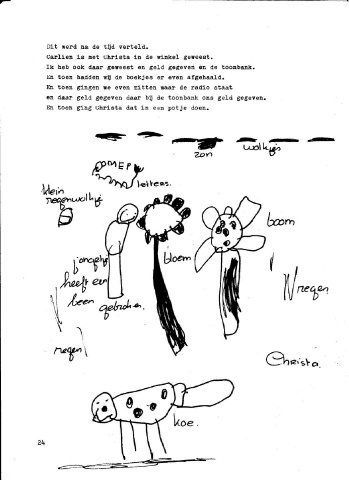 Dit werd na de tijd verteld.
Carlien is met Christa in de winkel geweest.
Ik heb ook daar geweest en geld gegeven en de toonbank.
En toen hadden wij de boekjes er even afgehaald.
En toen gingen we even zitten waar de radio staat
en daar geld gegeven daar bij de toonbank ons geld gegeven.
En toen ging Christa dat in een potje doen.
zon
wolkjes
letters.
klein
regenwolkje
boom
bloem
jongetje
heeft een
been
gebroken.
regen
regen
Christa.
koe.
24